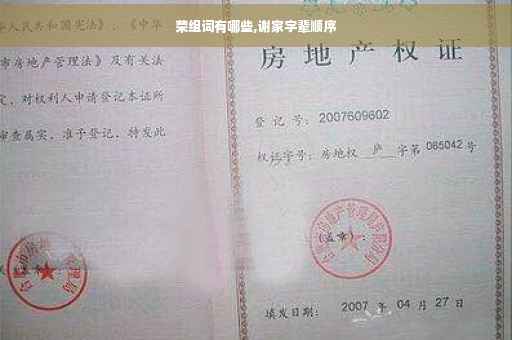 荣组词有哪些,谢家字辈顺序
华人民共和国宪法》、《中华
市房地产管理法》及有关法
定,对权利人申请登记本证所
审查属实,准予登记,特发此
房地产权证
登记号: 2007609602
权证字号: 房地权 庐 字第 085042 号
(盖章):
填发日期: 2007 年 04 月 27 日